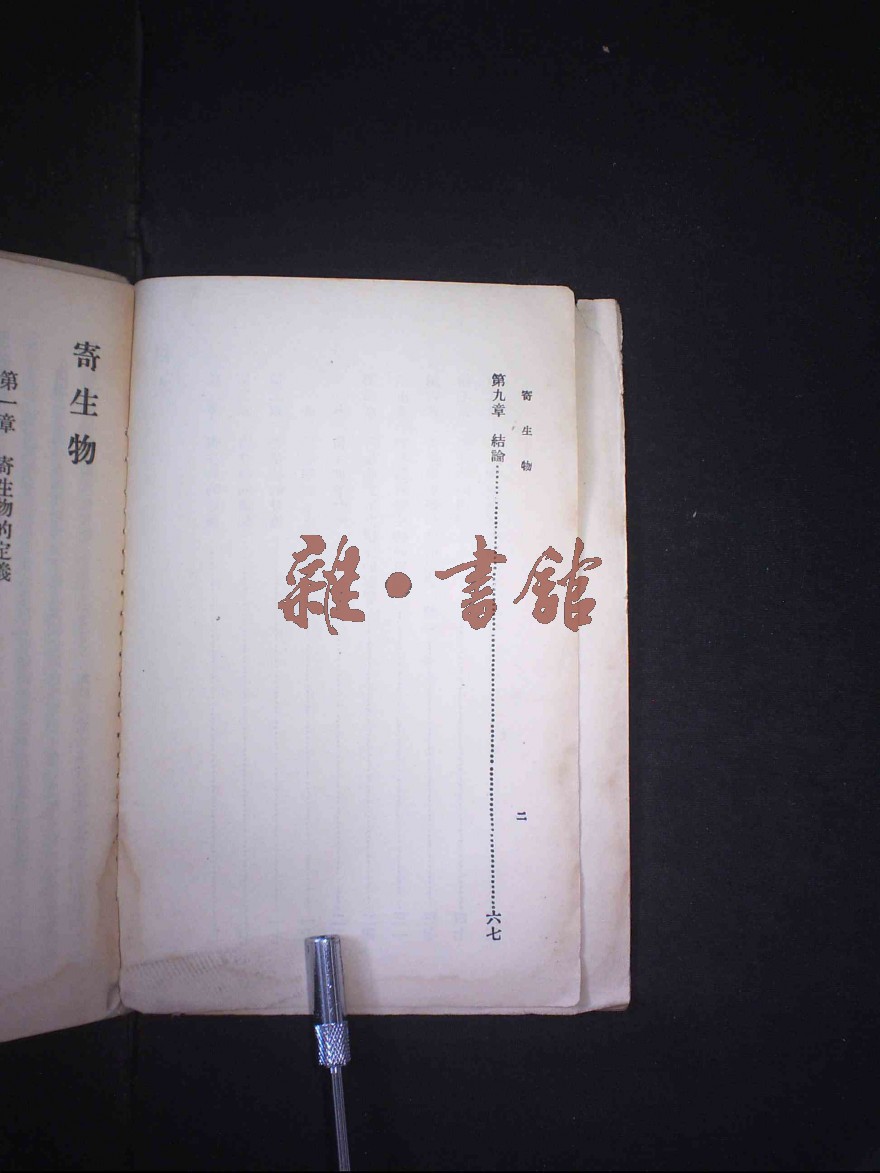 寄生物
二
第九章 結論………六七
寄生物
第一章 寄生物的定義
雜·書館